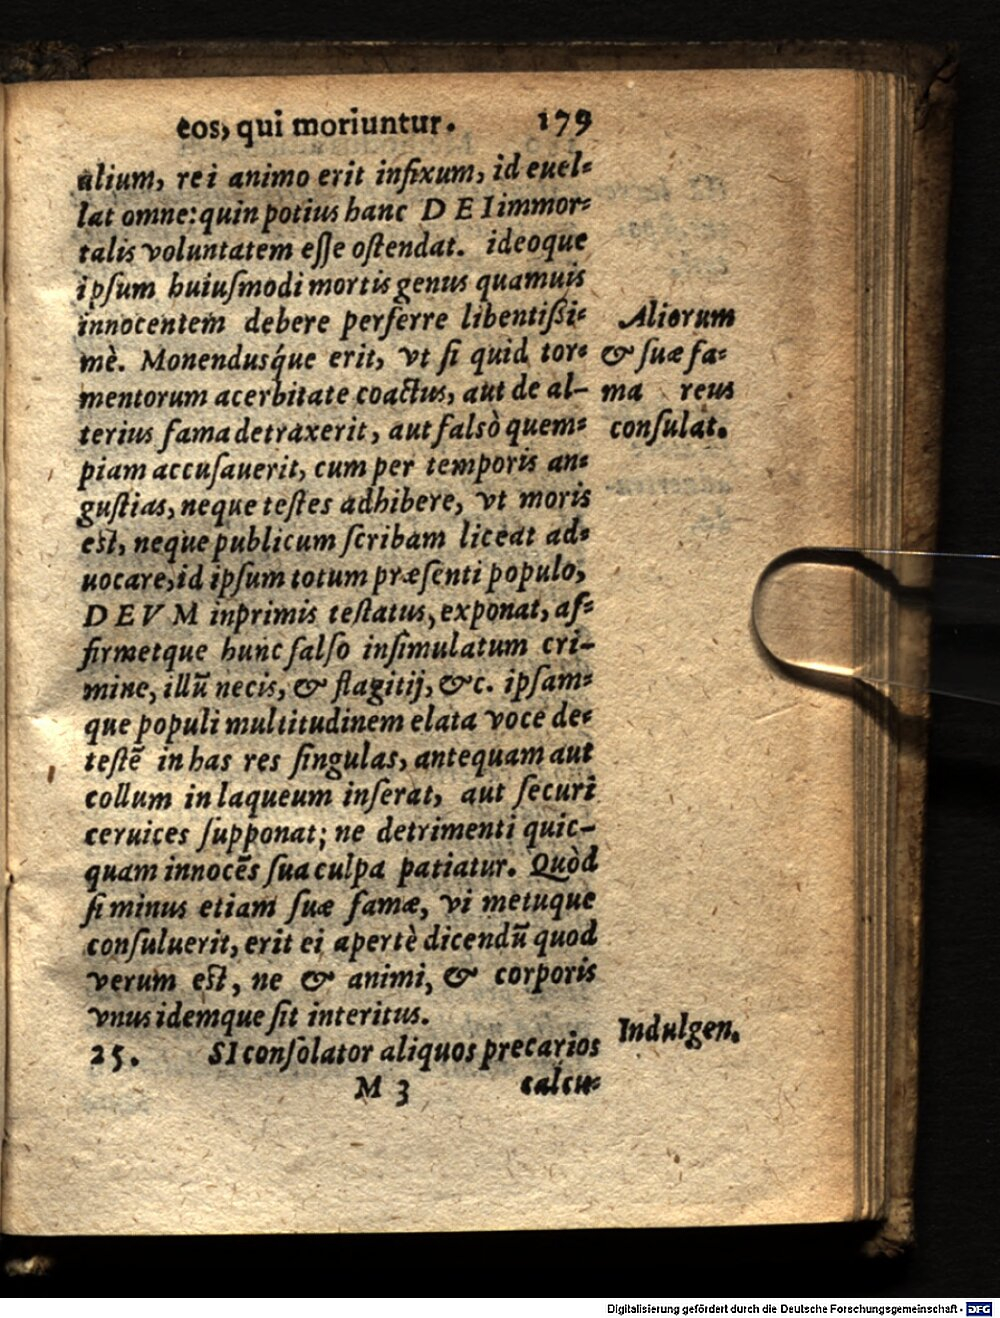 eos, qui moriuntur. 179
alium, rei animo erit infixum, id euel-
lat omne: quin potius hanc DEI immor-
talis voluntatem eſſe oſtendat. ideoque
ipſum huiuſmodi mortis genus quamuis
innocentem debere perferre libentißi-
mè. Monendusq́ue erit, vt ſi quid tor-
mentorum acerbitate coactus, aut de al-
terius fama detraxerit, aut falsò quem-
piam accuſauerit, cum per temporis an-
guſtias, neque teſtes adhibere, vt moris
eſt, neque publicum ſcribam liceat ad-
uocare, id ipſum totum præſenti populo,
DEVM inprimis teſtatus, exponat, af-
firmetque hunc falſo inſimulatum cri-
mine, illũ necis, & flagitij, &c. ipſam-
que populi multitudinem elata voce de-
teſtẽ in has res ſingulas, antequam aut
collum in laqueum inſerat, aut ſecuri
ceruices ſupponat; ne detrimenti quic-
quam innocẽs ſua culpa patiatur. Quòd
ſi minus etiam ſuæ famæ, vi metuque
conſuluerit, erit ei apertè dicendũ quod
verum eſt, ne & animi, & corporis
vnus idemque ſit interitus.
25. SI conſolator aliquos precarios
M 3 calcu-
Aliorum
& ſuæ fa-
ma reus
conſulat.
Indulgen.
Digitalisierung gefördert durch die Deutsche Forschungsgemeinschaft - DFG